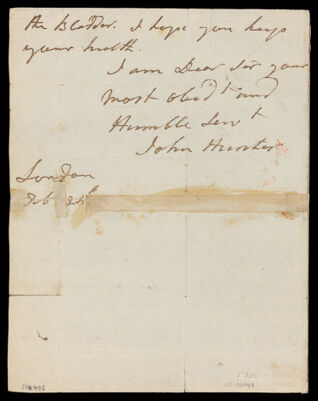 the Bladder. I hope you keep
your health.
I am Dear Sir your
most obedt and
Humble Servt
John Hunter
London
Feb 24th